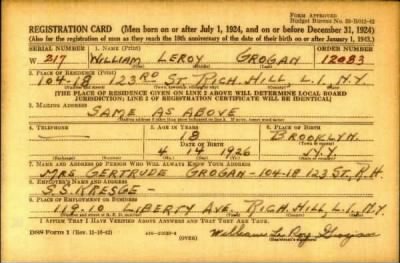 FORM APPROVED
REGISTRATION CARD (Men born on or after July 1, 1924, and on or before December 31, 1924)
(Also for the registration of men as they reach the 18th anniversary of the date of their birth on or after January 1, 1943.)
SERIAL NUMBER 1. NAME (Print) ORDER NUMBER
W 217 WILLIAM LEROY GROGAN 12083
2. PLACE OF RESIDENCE (Print)
104-18 123RD ST. RICH. HILL L.I. N.Y.
[THE PLACE OF RESIDENCE GIVEN ON LINE 2 ABOVE WILL DETERMINE LOCAL BOARD
JURISDICTION; LINE 2 OF REGISTRATION CERTIFICATE WILL BE IDENTICAL]
3. MAILING ADDRESS
SAME AS ABOVE
4. TELEPHONE 5. AGE IN YEARS 6. PLACE OF BIRTH
18 BROOKLYN
DATE OF BIRTH
4 14 1926 N.Y.
7. NAME AND ADDRESS OF PERSON WHO WILL ALWAYS KNOW YOUR ADDRESS
MRS GERTRUDE GROGAN-104-18 123 ST, R.H.
8. EMPLOYER'S NAME AND ADDRESS
S.S. KRESGE-
9. PLACE OF EMPLOYMENT OR BUSINESS
119-10 LIBERTY AVE, RICH. HILL, L.I. N.Y.
I AFFIRM THAT I HAVE VERIFIED ABOVE ANSWERS AND THAT THEY ARE TRUE.
DSS Form 1 (Rev. 11-16-42) (OVER) William Le Roy Grogan